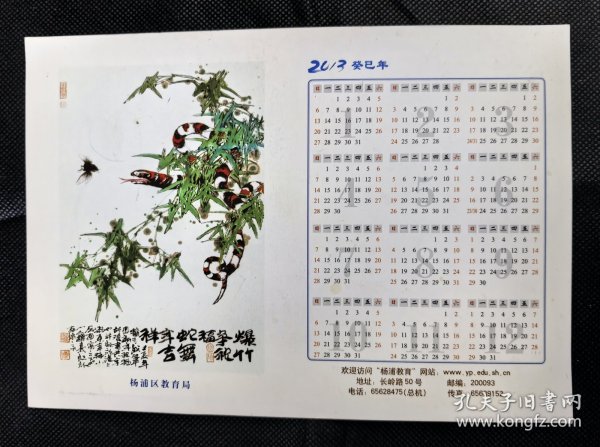 杨浦区教育局
2013 癸巳年
日 一 二 三 四 五 六
1 2 3 4 5
6 7 8 9 10 11 12
13 14 15 16 17 18 19
20 21 22 23 24 25 26
27 28 29 30 31
1
日 一 二 三 四 五 六
1 2
3 4 5 6 7 8 9
10 11 12 13 14 15 16
17 18 19 20 21 22 23
24 25 26 27 28
2
日 一 二 三 四 五 六
1 2
3 4 5 6 7 8 9
10 11 12 13 14 15 16
17 18 19 20 21 22 23
24/31 25 26 27 28 29 30
3
日 一 二 三 四 五 六
1 2 3 4 5 6
7 8 9 10 11 12 13
14 15 16 17 18 19 20
21 22 23 24 25 26 27
28 29 30
4
日 一 二 三 四 五 六
1 2 3 4
5 6 7 8 9 10 11
12 13 14 15 16 17 18
19 20 21 22 23 24 25
26 27 28 29 30 31
5
日 一 二 三 四 五 六
1
2 3 4 5 6 7 8
9 10 11 12 13 14 15
16 17 18 19 20 21 22
23/30 24 25 26 27 28 29
6
日 一 二 三 四 五 六
1 2 3 4 5 6
7 8 9 10 11 12 13
14 15 16 17 18 19 20
21 22 23 24 25 26 27
28 29 30 31
7
日 一 二 三 四 五 六
1 2 3
4 5 6 7 8 9 10
11 12 13 14 15 16 17
18 19 20 21 22 23 24
25 26 27 28 29 30 31
8
日 一 二 三 四 五 六
1 2 3 4 5 6 7
8 9 10 11 12 13 14
15 16 17 18 19 20 21
22 23 24 25 26 27 28
29 30
9
日 一 二 三 四 五 六
1 2 3 4 5
6 7 8 9 10 11 12
13 14 15 16 17 18 19
20 21 22 23 24 25 26
27 28 29 30 31
10
日 一 二 三 四 五 六
1 2
3 4 5 6 7 8 9
10 11 12 13 14 15 16
17 18 19 20 21 22 23
24 25 26 27 28 29 30
11
日 一 二 三 四 五 六
1 2 3 4 5 6 7
8 9 10 11 12 13 14
15 16 17 18 19 20 21
22 23 24 25 26 27 28
29 30 31
12
欢迎访问“杨浦教育”网站:www.yp.edu.sh.cn
地址:长岭路50号 邮编:200093
电话:65628475(总机) 传真:65639152
孔夫子旧书网
www.kongfz.com